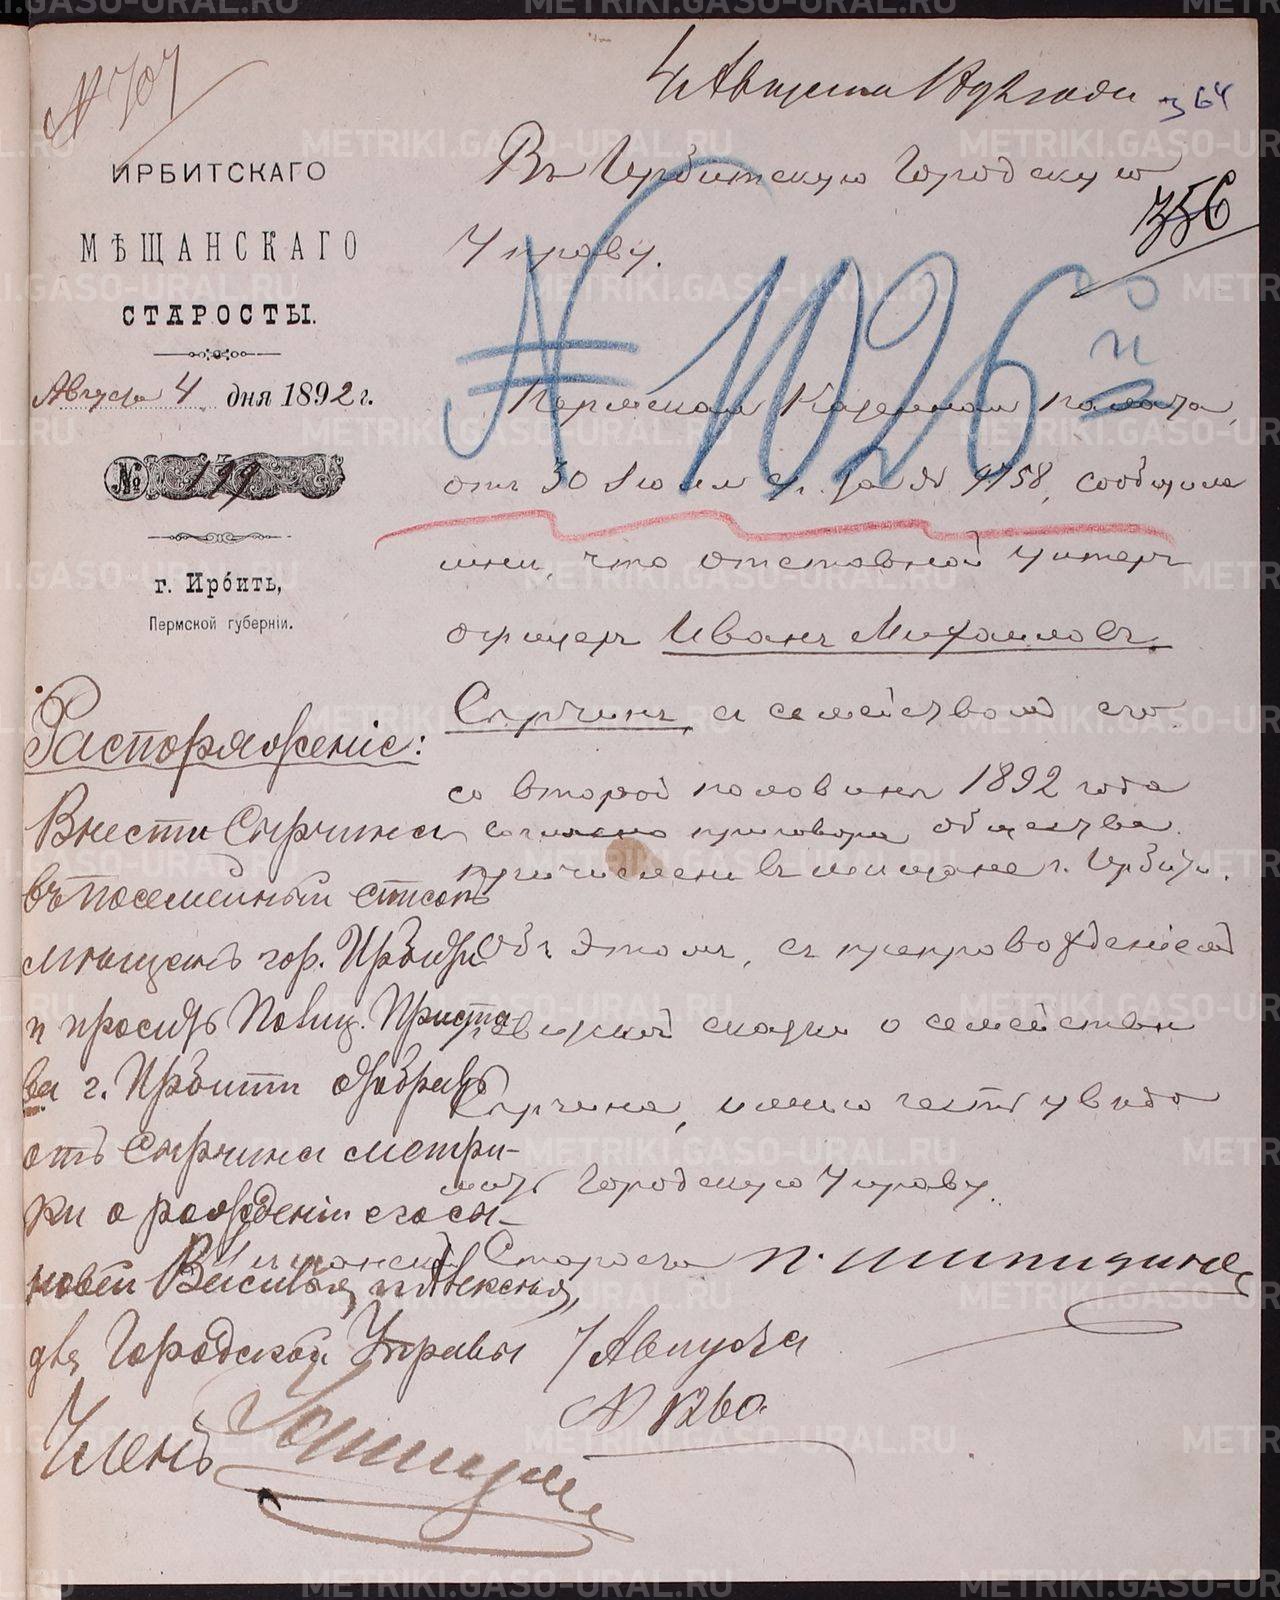 № 707
4 Августа 1892 года
364
356
ИРБИТСКАГО
МѢЩАНСКАГО
СТАРОСТЫ.
Августа 4 дня 1892 г.
№ 199
г. Ирбить,
Пермской губерніи.
Въ Ирбитскую Городскую
Управу.
№ 1026
Пермская Казенная палата,
отъ 30 Іюля с.г. за № 9758, сообщила
мнѣ, что отставной унтеръ
офицеръ Иванъ Михаиловъ
Сырчинъ, съ семействомъ его
со второй половины 1892 года
согласно приговора общества
причислены въ мещане г. Ирбити.
Объ этомъ, съ препровожденіемъ
ревизской сказки о семействѣ
Сырчина, имѣю честь увѣдо
мить Городскую Управу.
Мѣщанскій Староста П. Шипицинъ
Распоряженіе:
Внести Сырчина
въ посемейный списокъ
мѣщанъ гор. Ирбити
и просить Полиц. Приста
ва г. Ирбити отобрать
отъ Сырчина метри-
ки о рожденіи его сы-
новей Василья и Алексѣя,
для Городской Управы
Членъ
7 Августа
№ 1260.
METRIKI.GASO-URAL.RU